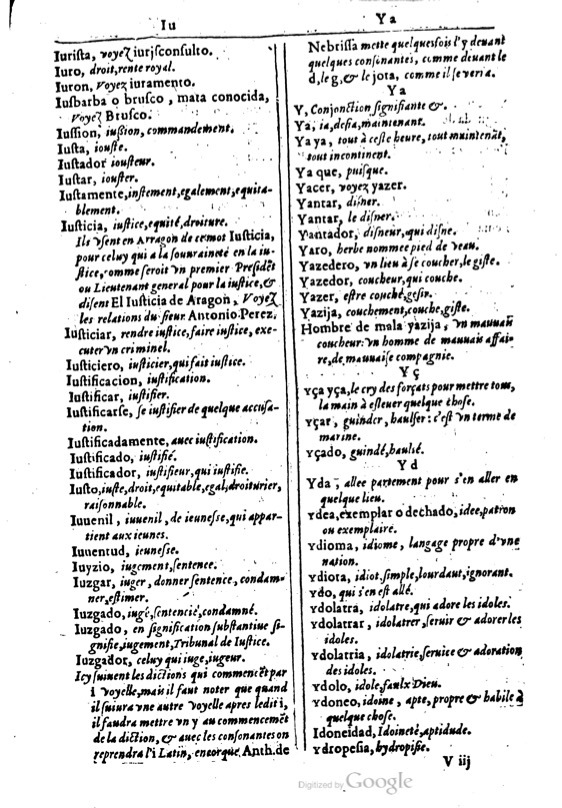 Iu
Iurista, voyez iurisconsulto.
Iuro, droit, rente royal.
Iuron, Voyez iuramento.
Iusbarba o brusco, mata conocida,
Voyez Brusco.
Iussion, iussion, commandement.
Iusta, iouste.
Iustador iousteur.
Iustar, iouster.
Iustamente, iustement, egalement, equita-
blement.
Iusticia, iustice, equité, droiture.
Ils vsent en Arragon de ce mot Iusticia,
pour celuy qui a la souuraineté en la iu-
stice, comme seroit vn premier Presidēt
ou Lieutenant general pour la iustice, &
disent El Iusticia de Aragon, Voyez
les relations du sieur Antonio Perez.
Iusticiar, rendre iustice, faire iustice, exe-
cuter vn criminel.
Iusticiero, iusticier, qui fait iustice.
Iustificacion, iustification.
Iustificar, iustifier.
Iustificarse, se iustifier de quelque accusa-
tion.
Iustificadamente, auec iustification.
Iustificado, iustifié.
Iustificador, iustifieur, qui iustifie.
Iusto, iuste, droit, equitable, egal, droiturier,
raisonnable.
Iuuenil, iuuenil, de ieunesse, qui appar-
tient aux ieunes.
Iuuentud, ieunesse.
Iuyzio, iugement, sentence.
Iuzgar, iuger, donner sentence, condam-
ner, estimer.
Iuzgado, iugé, sentencié, condamné.
Iuzgado, en signification substantiue si-
gnifie, iugement, Tribunal de Iustice.
Iuzgador, celuy qui iuge, iugeur.
Icy suiuent les dictions qui commencēt par
i voyelle, mais il faut noter que quand
il suiura vne autre voyelle apres ledit i,
il faudra mettre vn y au commencemēt
de la diction, & auec les consonantes on
reprendra l'i Latin, encorque Anth. de
Ya
Nebrissa mette quelquesfois l'y deuant
quelques consinantes, comme deuant le
d, le g, & le jota, comme il se verra.
Ya
Y, Conjonction signifiante &.
Ya, ia, desia, maintenant.
Ya ya, tout à ceste heure, tout maintenāt,
tout incontinent.
Ya que, puisque.
Yacer, voyez yazer.
Yantar, disner.
Yantar, le disner.
Yantador, disneur, qui disne.
Yaro, herbe nommee pied de veau.
Yazedero, vn lieu à se coucher, le giste.
Yazedor, coucheur, qui couche.
Yazer, estre couché, gesir.
Yazija, couchement, couche, giste.
Hombre de mala yazija, vn mauuais
coucheur: vn homme de mauuais affai-
re, de mauuaise compagnie.
Yç
Yça yça, le cry des forçats pour mettre tous,
la main à esleuer quelque chose.
Yçar, guinder, haulser: c'est vn terme de
marine.
Yçado, guindé, haulsé.
Yd
Yda, allee partement pour s'en aller en
quelque lieu.
Ydea, exemplar o dechado, idee, patron
ou exemplaire.
Ydioma, idiome, langage propre d'vne
nation.
Ydiota, idiot, simple, lourdaut, ignorant.
Ydo, qui s'en est allé.
Ydolatra, idolatre, qui adore les idoles.
Ydolatrar, idolatrer, seruir & adorer les
idoles.
Ydolatria, idolatrie, seruice & adoration
des idoles.
Ydolo, idole, faulx Dieu.
Ydoneo, idoine, apte, propre & habile à
quelque chose.
Idoneidad, Idoineté, aptidude.
Ydropesia, hydropisie.
V iij
Digitized by Google